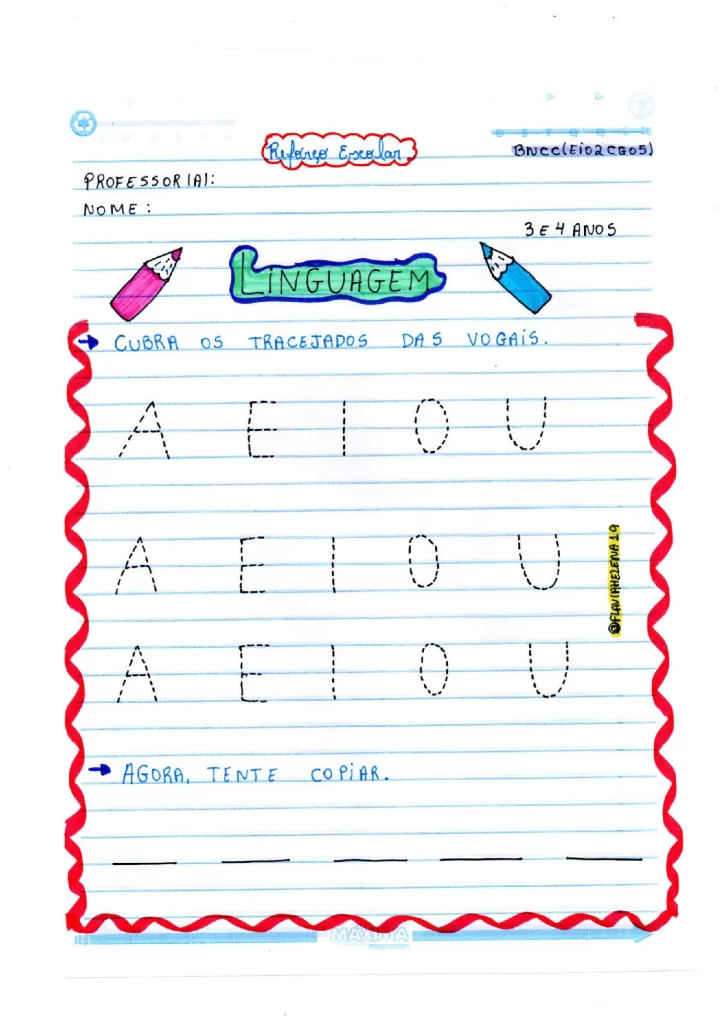 Reforço Escolar
BNCC(EI02CG05)
PROFESSOR(A):
NOME:
3 E 4 ANOS
LINGUAGEM
CUBRA OS TRACEJADOS DAS VOGAIS.
A E I O U
A E I O U
@FLAVIAHELENA19
A E I O U
AGORA, TENTE COPIAR.
MÁXIMA